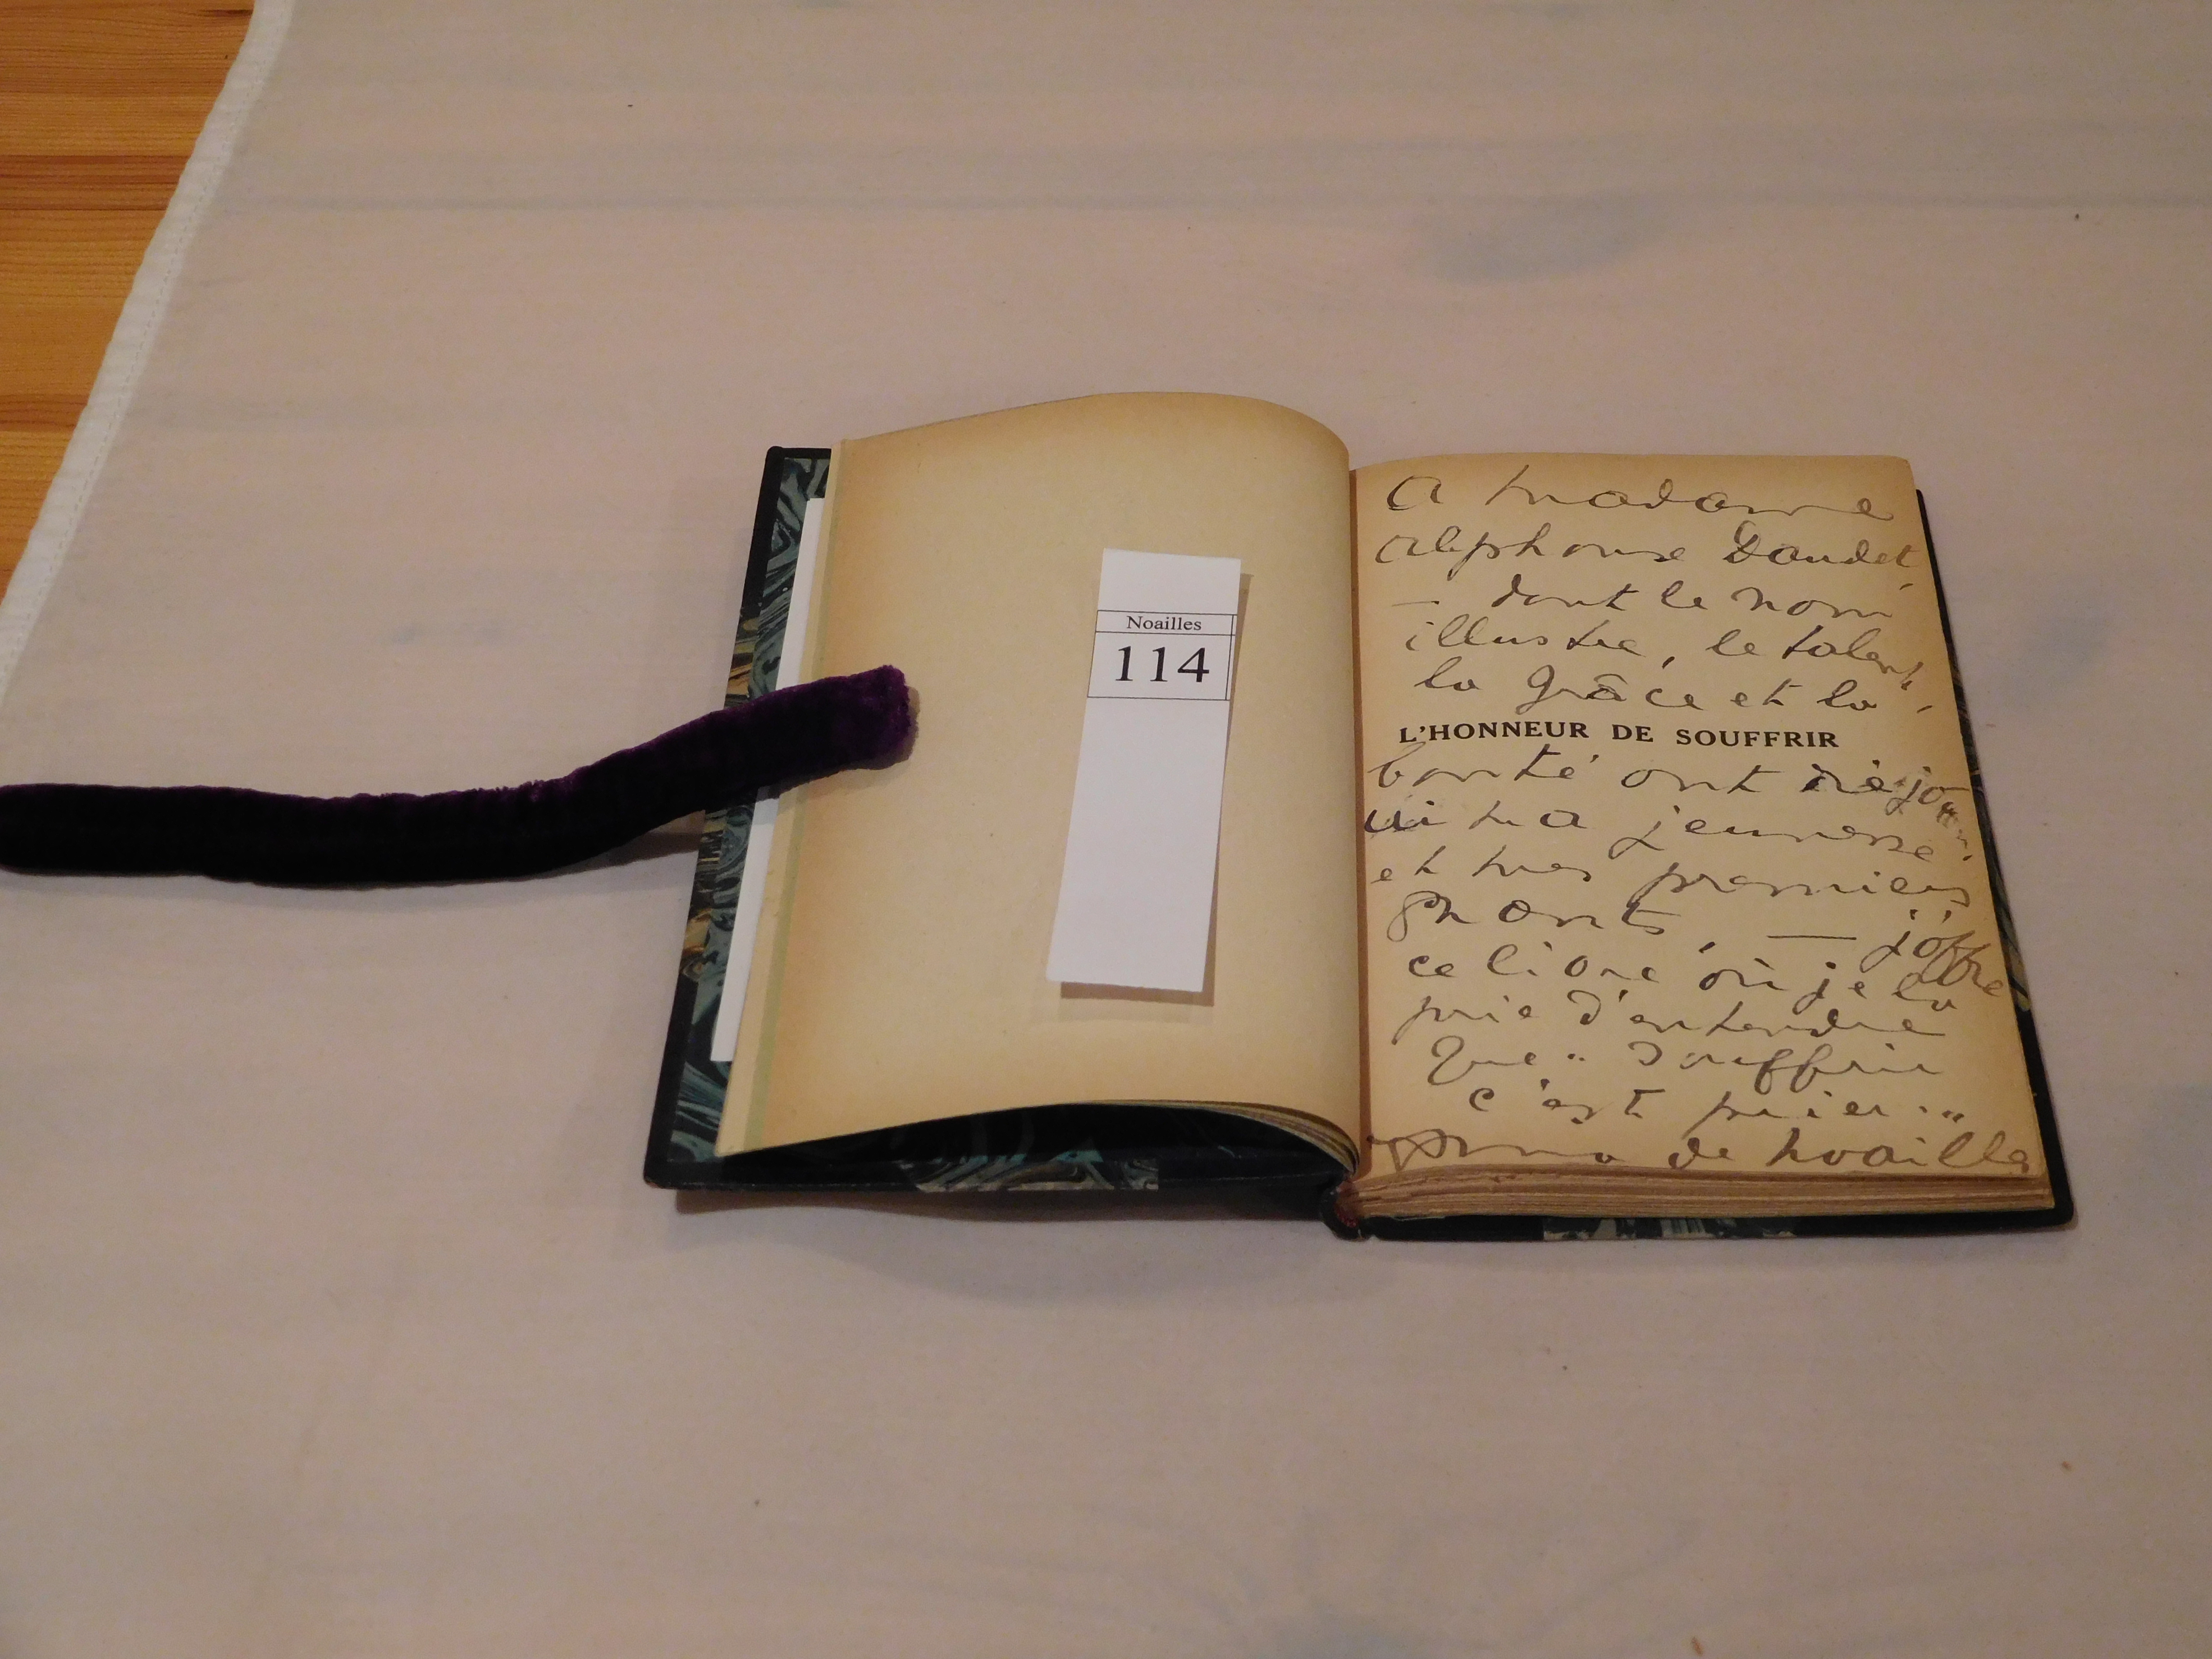 Noailles
114
A Madame
Alphonse Daudet,
— dont le nom
illustre, le talent,
la grâce et la
L'HONNEUR DE SOUFFRIR
bonté ont
ma jeunesse
et mes premiers
chants, — j'offre
ce livre où je la
prie d'entendre
que " Souffrir
c'est prier. "
Anna de Noailles